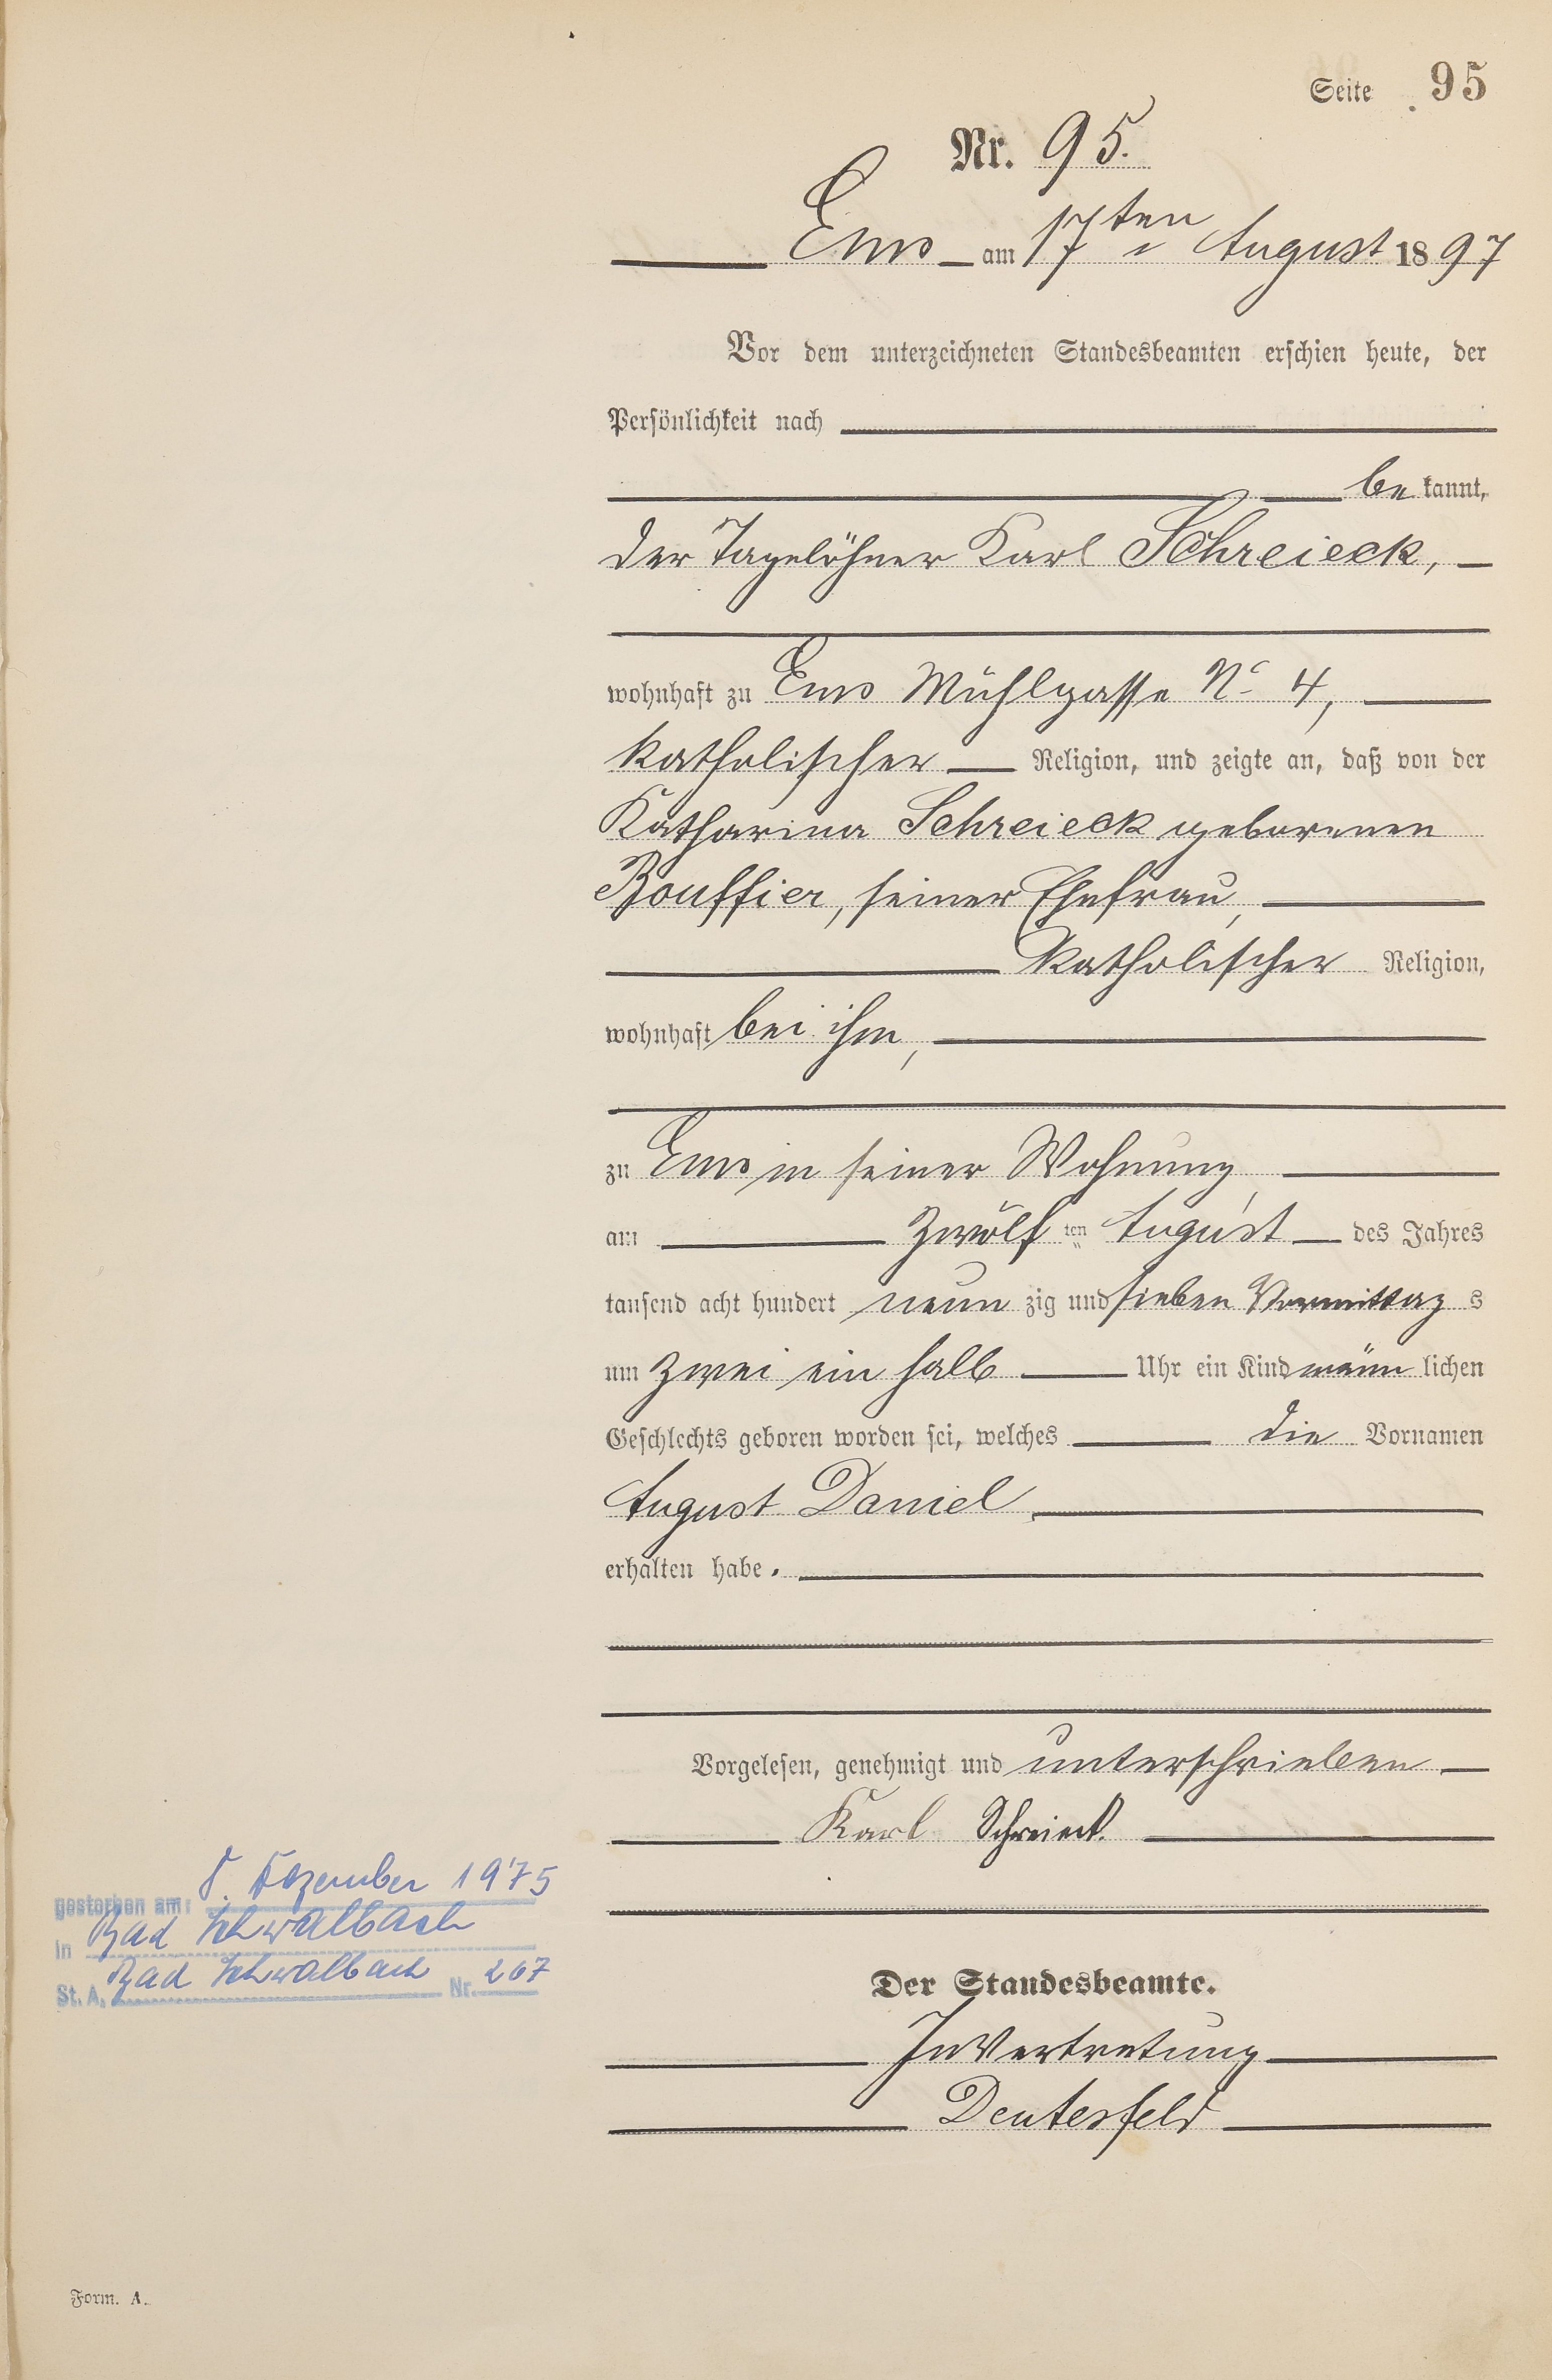 Seite 95
Nr. 95.
Ems am 17ten August 1897
Vor dem unterzeichneten Standesbeamten erschien heute, der
Persönlichkeit nach
bekannt,
der Tagelöhner Karl Schreieck,
wohnhaft zu Ems Mühlgasse No 4,
katholischer Religion, und zeigte an, daß von der
Katharina Schreieck geborenen
Bouffier, seiner Ehefrau,
katholischer Religion,
wohnhaft bei ihm,
zu Ems in seiner Wohnung,
am zwölf ten August des Jahres
tausend acht hundert neunzig und sieben Vormittags
um zwei ein halb Uhr ein Kind männlichen
Geschlechts geboren worden sei, welches die Vornamen
August Daniel,
erhalten habe.
Vorgelesen, genehmigt und unterschrieben
Karl Schreieck.
gestorben am: 8. Dezember 1975
in Bad Schwalbach
St. A. Bad Schwalbach Nr. 267
Der Standesbeamte.
In Vertretung
Deutesfeld
Form. A.